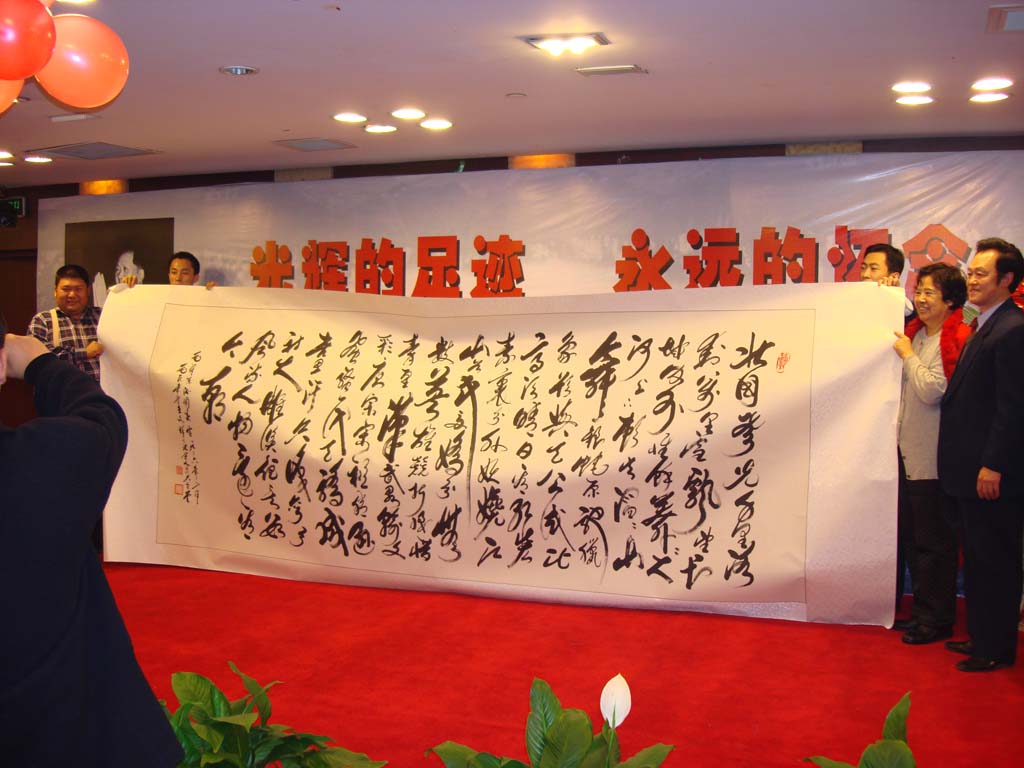 光辉的足迹 永远的怀念
北国风光千里冰
封万里雪飘望长
城内外惟余莽莽大
河上下顿失滔滔山
舞银蛇原驰蜡
象欲与天公试比
高须晴日看红装
素裹分外妖娆江
山如此多娇引无
数英雄竞折腰惜
秦皇汉武略输文
采唐宗宋祖稍逊
风骚一代天骄成
吉思汗只识弯弓
射大雕俱往矣数
风流人物还看
今朝